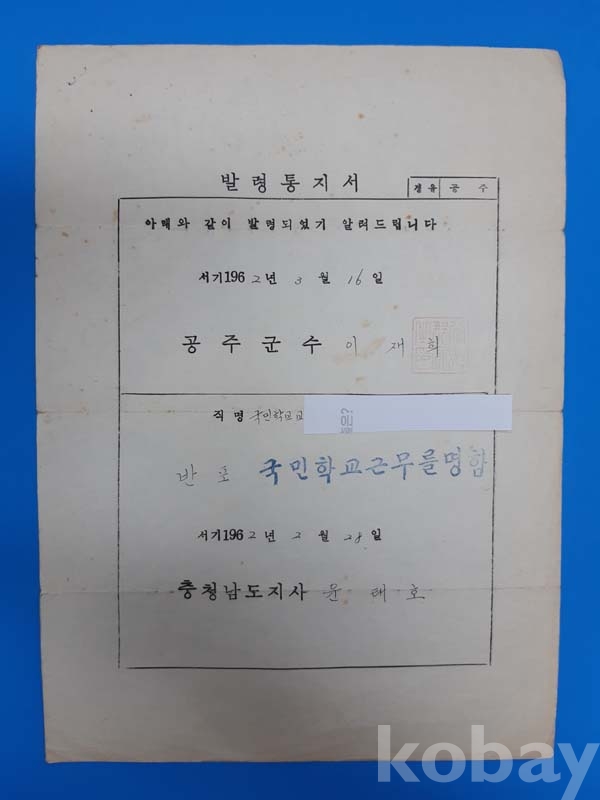 발령통지서
경유 공주
아래와 같이 발령되었기 알려드립니다
서기1962년 3월 16일
공주군수 이재희
직명 국민학교교
반포 국민학교근무를명함
서기1962년 2월 28일
충청남도지사 윤태호
kobay